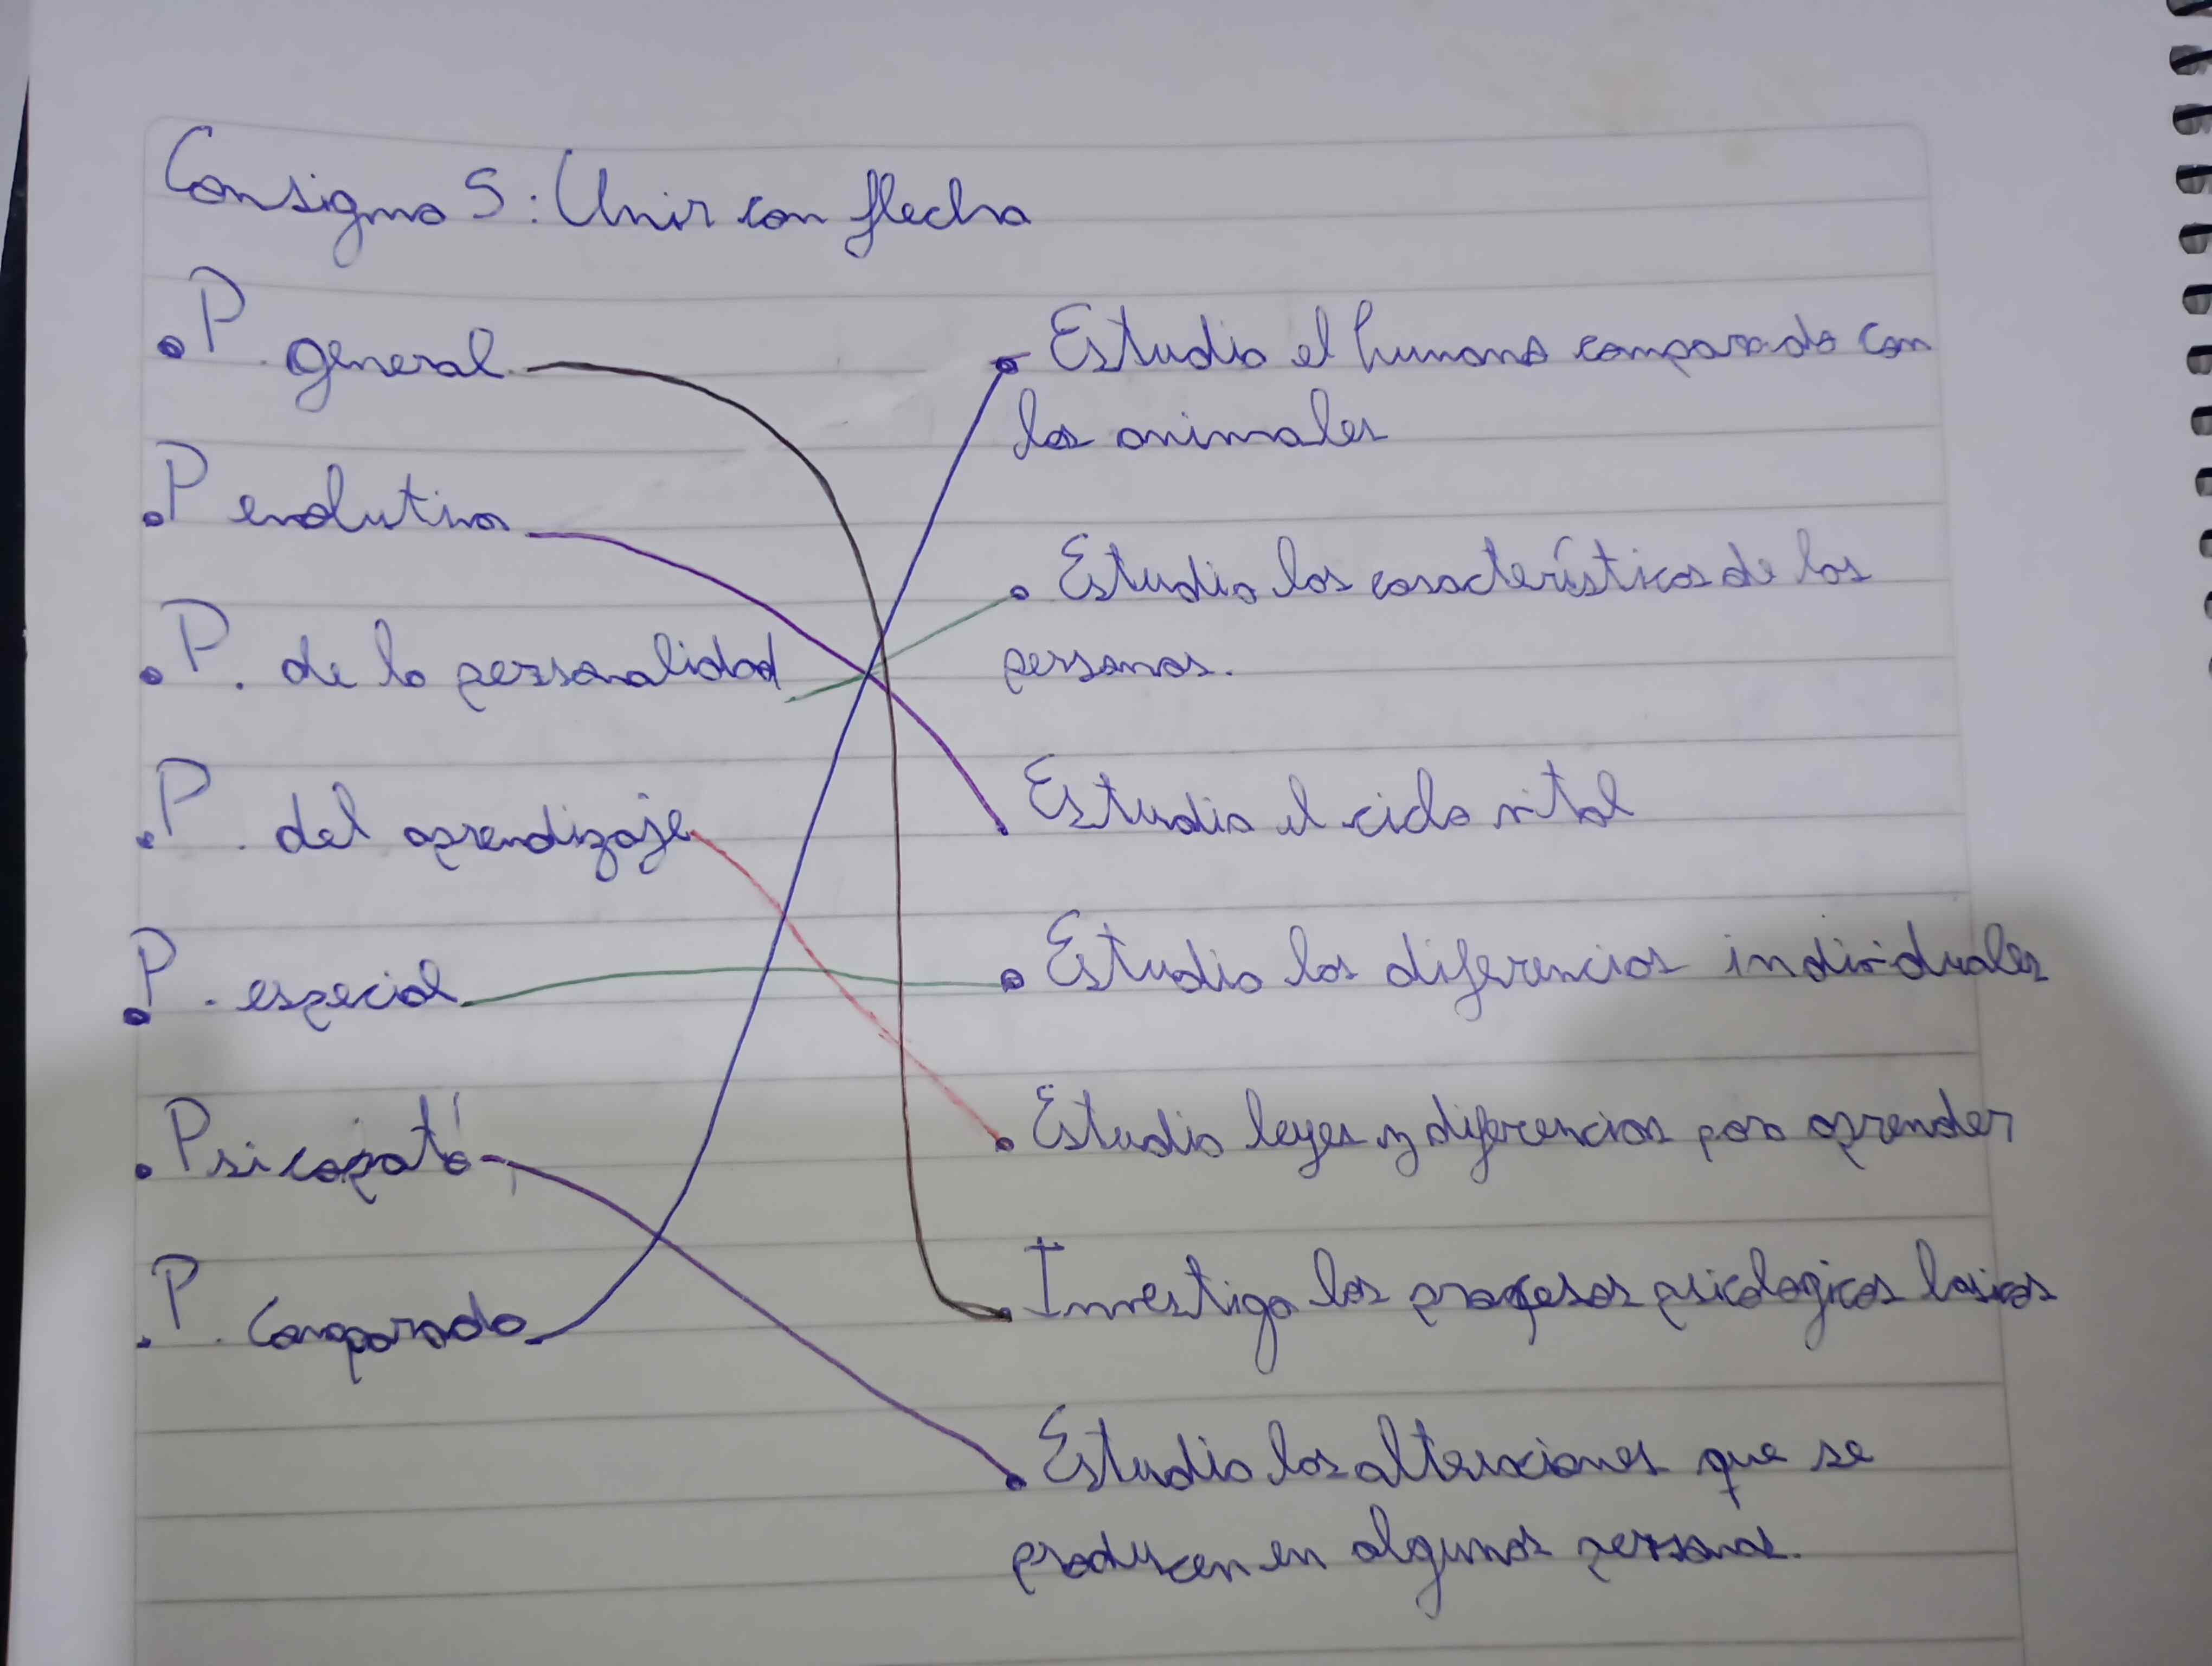 Consigna 5: Unir con flecha
P. general
Estudia el humano comparado con
los animales
P evolutiva
Estudia las características de las
personas.
P. de la personalidad
Estudia el ciclo vital
P. del aprendizaje
Estudia las diferencias individuales
P. especial
Estudia leyes y diferencias para aprender
Psicopato
Investiga los procesos psicologicos basicos
P. Comparada
Estudia las alteraciones que se
producen en algunas personas.